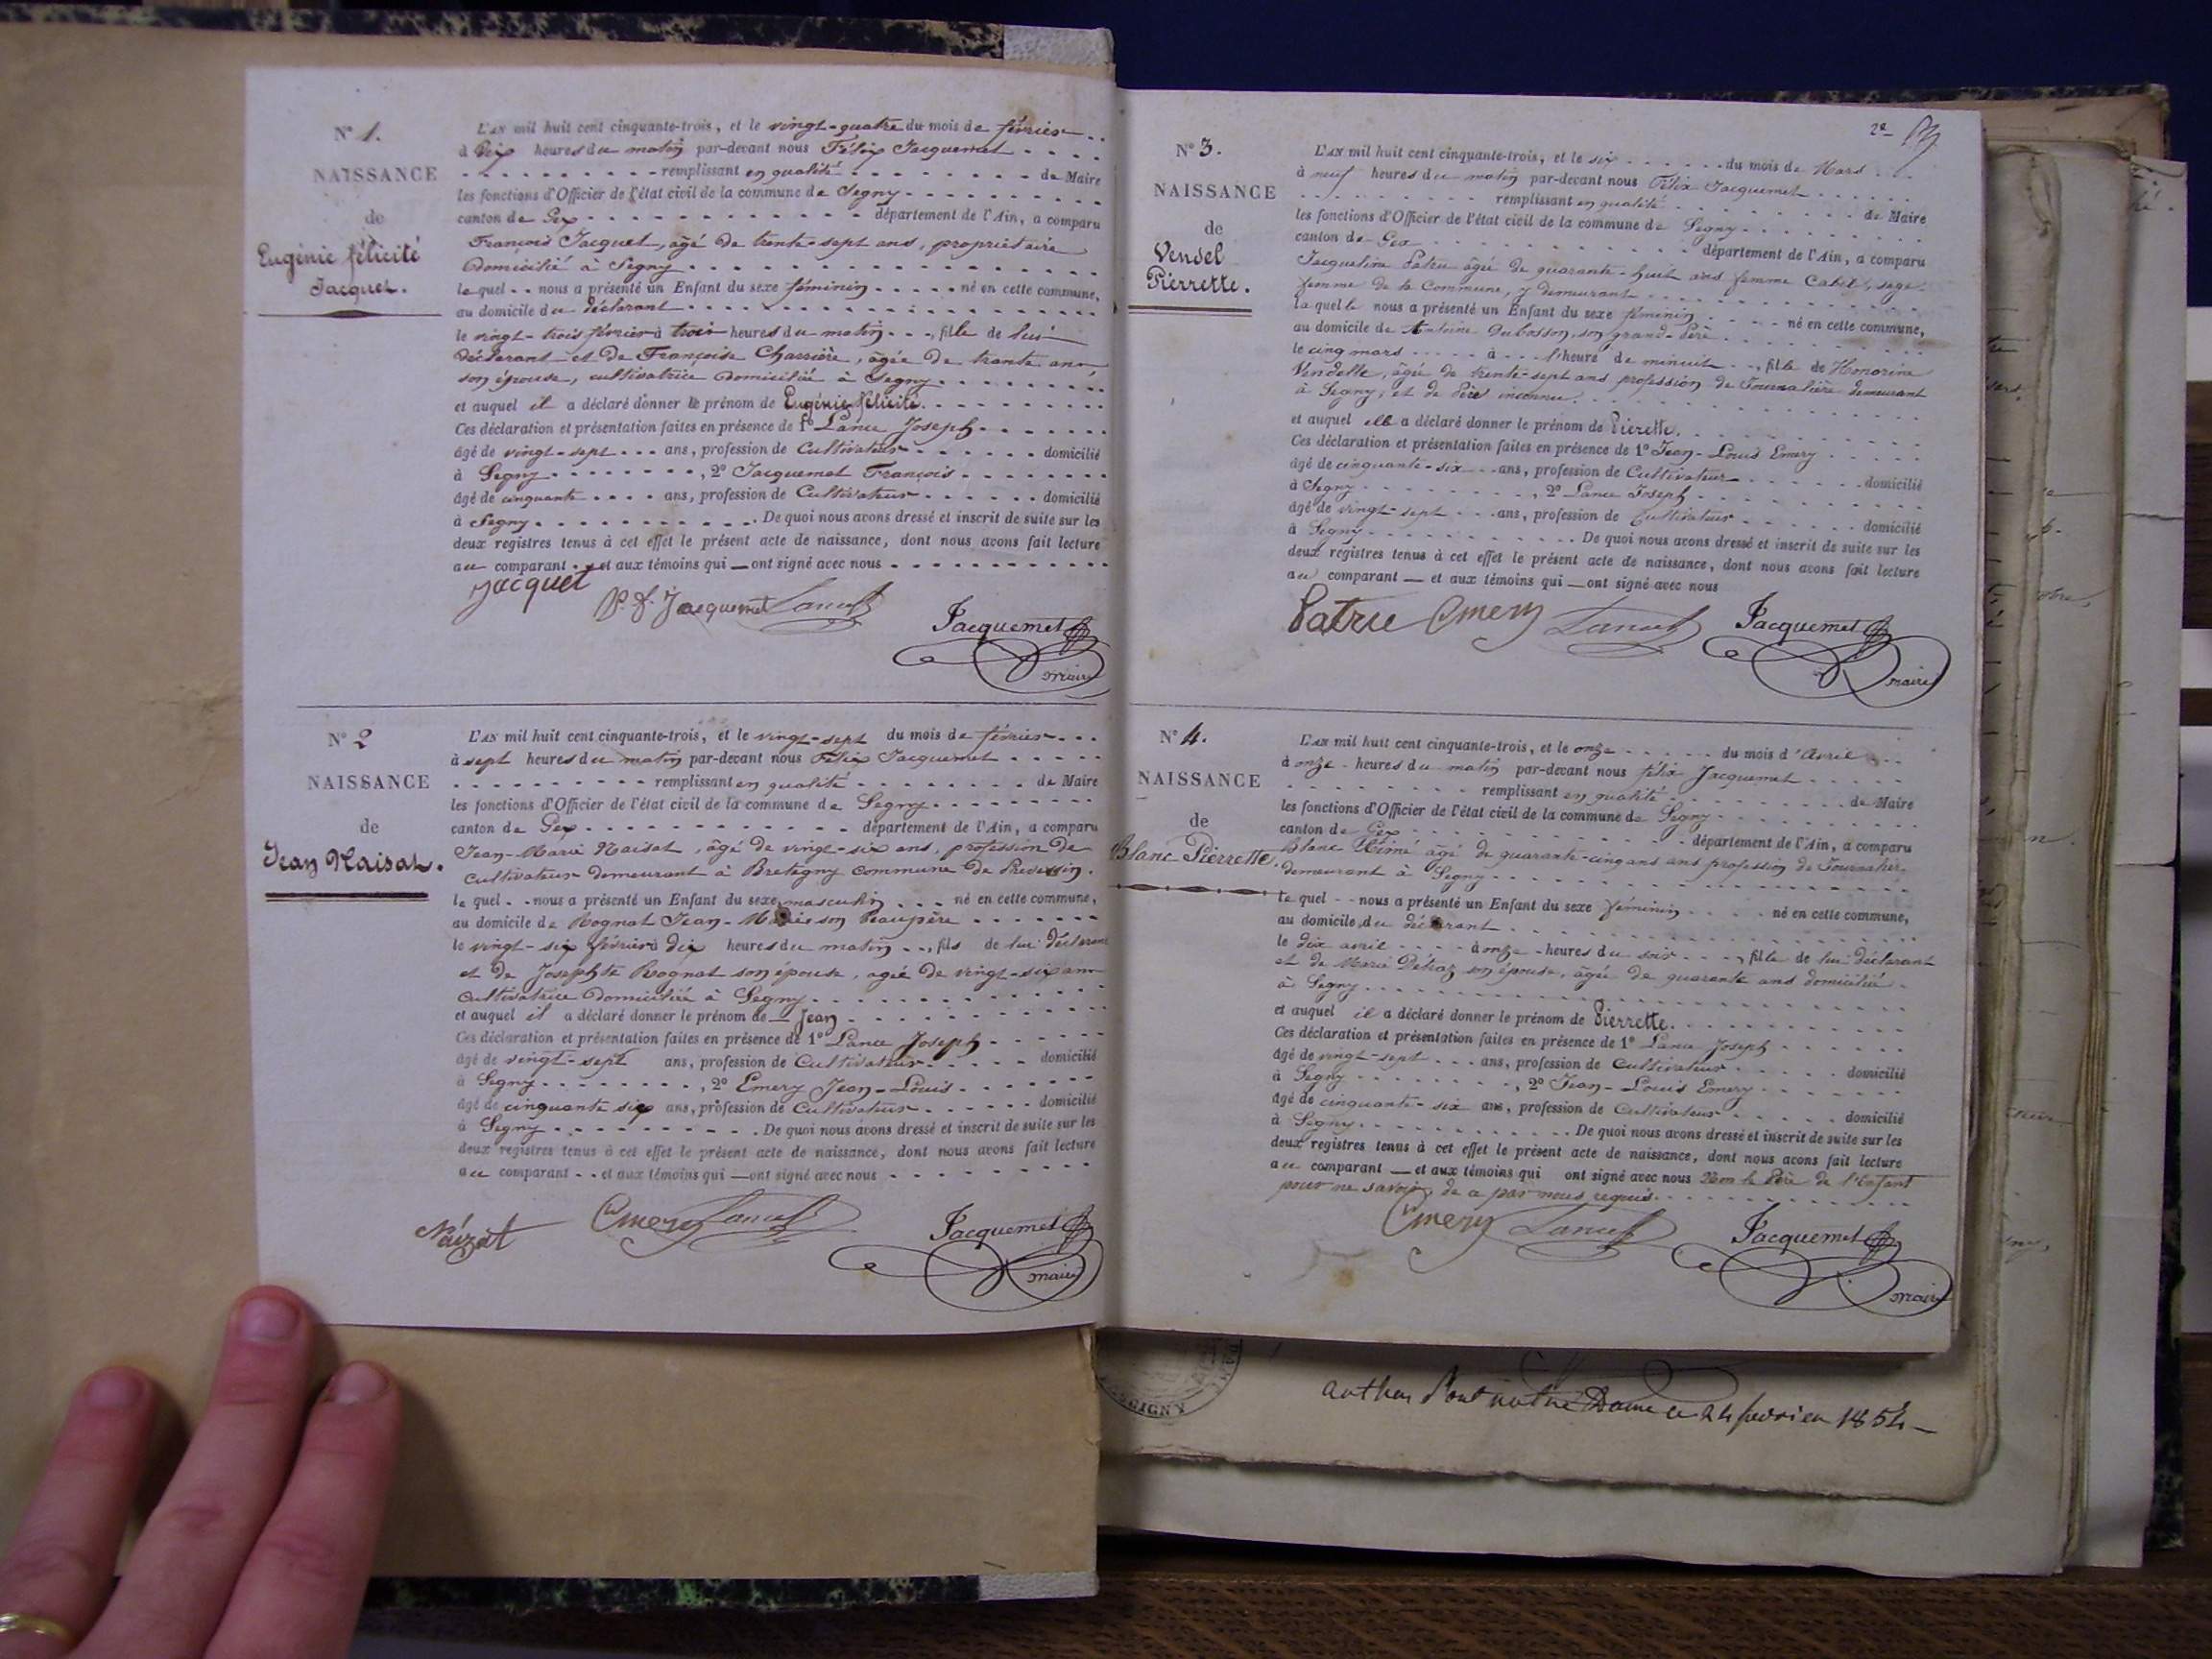 N° 1.
NAISSANCE
de
Eugénie félicité
Jacquet.
L'AN mil huit cent cinquante-trois, et le vingt-quatre du mois de février
à dix heures du matin par-devant nous Félix Jacquemet
remplissant en qualité de Maire
les fonctions d'Officier de l'état civil de la commune de Segny
canton de Gex département de l'Ain, a comparu
François Jacquet, âgé de trente-sept ans, propriétaire
domicilié à Segny
lequel nous a présenté un Enfant du sexe féminin né en cette commune,
au domicile du déclarant
le vingt-trois février à trois heures du matin, fille de lui
déclarant et de Françoise Charrière, âgée de trante ans
son épouse, cultivatrice domiciliée à Segny
et auquel il a déclaré donner le prénom de Eugénie félicité.
Ces déclaration et présentation faites en présence de 1° Lance Joseph
âgé de vingt-sept ans, profession de Cultivateur domicilié
à Segny, 2° Jacquemet François
âgé de cinquante ans, profession de Cultivateur domicilié
à Segny. De quoi nous avons dressé et inscrit de suite sur les
deux registres tenus à cet effet le présent acte de naissance, dont nous avons fait lecture
au comparant et aux témoins qui ont signé avec nous
Jacquet
Jacquemet Lance J
Jacquemet
maire
N° 2
NAISSANCE
de
Jean Naisat.
L'AN mil huit cent cinquante-trois, et le vingt-sept du mois de février
à sept heures du matin par-devant nous Félix Jacquemet
remplissant en qualité de Maire
les fonctions d'Officier de l'état civil de la commune de Segny
canton de Gex département de l'Ain, a comparu
Jean-Marie Naisat, âgé de vingt-six ans, profession de
cultivateur demeurant à Bretegny commune de Prevessin.
lequel nous a présenté un Enfant du sexe masculin né en cette commune,
au domicile de Rognat Jean-Marie son Beaupère
le vingt-six février à dix heures du matin, fils de lui déclarant
et de Josephte Rognat son épouse, agée de vingt-six ans
cultivatrice domiciliée à Segny
et auquel il a déclaré donner le prénom de Jean
Ces déclaration et présentation faites en présence de 1° Lance Joseph
âgé de vingt-sept ans, profession de Cultivateur domicilié
à Segny, 2° Emery Jean-Louis
âgé de cinquante six ans, profession de Cultivateur domicilié
à Segny. De quoi nous avons dressé et inscrit de suite sur les
deux registres tenus à cet effet le présent acte de naissance, dont nous avons fait lecture
au comparant et aux témoins qui ont signé avec nous
Naizat Emery Lance J
Jacquemet
maire
2e
N° 3.
NAISSANCE
de
Vendel
Pierrette.
L'AN mil huit cent cinquante-trois, et le six du mois de Mars
à neuf heures du matin par-devant nous Félix Jacquemet
remplissant en qualité de Maire
les fonctions d'Officier de l'état civil de la commune de Segny
canton de Gex département de l'Ain, a comparu
Jacqueline Patru âgée de quarante-huit ans femme sage-
femme de la Commune, y demeurant
laquelle nous a présenté un Enfant du sexe féminin né en cette commune,
au domicile de Antoine Dubosson, son grand-Père
le cinq mars à l'heure de minuit, fille de Honorine
Vendelle, âgée de trente-sept ans profession de Journalière demeurant
à Segny, et de Père inconnu.
et auquel elle a déclaré donner le prénom de Pierette.
Ces déclaration et présentation faites en présence de 1° Jean-Louis Emery
âgé de cinquante-six ans, profession de Cultivateur domicilié
à Segny, 2° Lance Joseph
âgé de vingt-sept ans, profession de Cultivateur domicilié
à Segny. De quoi nous avons dressé et inscrit de suite sur les
deux registres tenus à cet effet le présent acte de naissance, dont nous avons fait lecture
au comparant — et aux témoins qui — ont signé avec nous
Patrue Emery Lance J Jacquemet
maire
N° 4.
NAISSANCE
de
Blanc Pierrette.
L'AN mil huit cent cinquante-trois, et le onze du mois d'Avril
à onze heures du matin par-devant nous félix Jacquemet
remplissant en qualité de Maire
les fonctions d'Officier de l'état civil de la commune de Segny
canton de Gex département de l'Ain, a comparu
Blanc âgé de quarante-cinq ans ans profession de Journalier,
demeurant à Segny
lequel nous a présenté un Enfant du sexe féminin né en cette commune,
au domicile du déclarant
le dix avril à onze heures du soir, fille de lui déclarant
et de Marie son épouse, âgée de quarante ans domicilié
à Segny
et auquel il a déclaré donner le prénom de Pierrette.
Ces déclaration et présentation faites en présence de 1° Lance Joseph
âgé de vingt-sept ans, profession de Cultivateur domicilié
à Segny, 2° Jean-Louis Emery
âgé de cinquante-six ans, profession de Cultivateur domicilié
à Segny. De quoi nous avons dressé et inscrit de suite sur les
deux registres tenus à cet effet le présent acte de naissance, dont nous avons fait lecture
au comparant — et aux témoins qui ont signé avec nous Non le Père de l'Enfant
pour ne savoir, de a par nous requis.
Emery Lance J Jacquemet
maire
notre Dame le 24 fevrier 1854